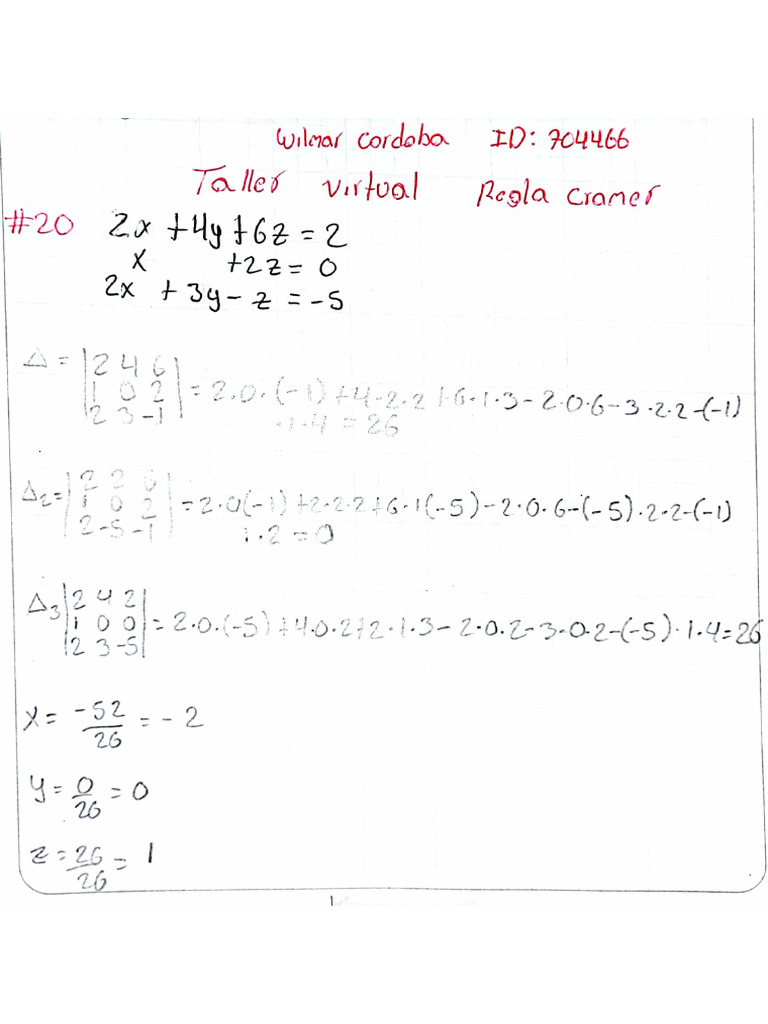 Wilmar Cordoba ID: 704466
Taller Virtual Regla Cramer
#20 2x +4y +6z = 2
x +2z = 0
2x + 3y - z = -5
Δ = |2 4 6|
|1 0 2| = 2·0·(-1) +4·2·2 + 6·1·3 - 2·0·6 - 3·2·2 -(-1)
|2 3 -1| ·1·4 = 26
Δ2 = |2 2 6|
|1 0 2| = 2·0(-1) +2·2·2 +6·1(-5) - 2·0·6 -(-5)·2·2 -(-1)
|2 -5 -1| 1·2 = 0
Δ3 |2 4 2|
|1 0 0| = 2·0·(-5) +4·0·2 +2·1·3 - 2·0·2 - 3·0·2 -(-5)·1·4 = 26
|2 3 -5|
x = -52/26 = -2
y = 0/26 = 0
z = 26/26 = 1